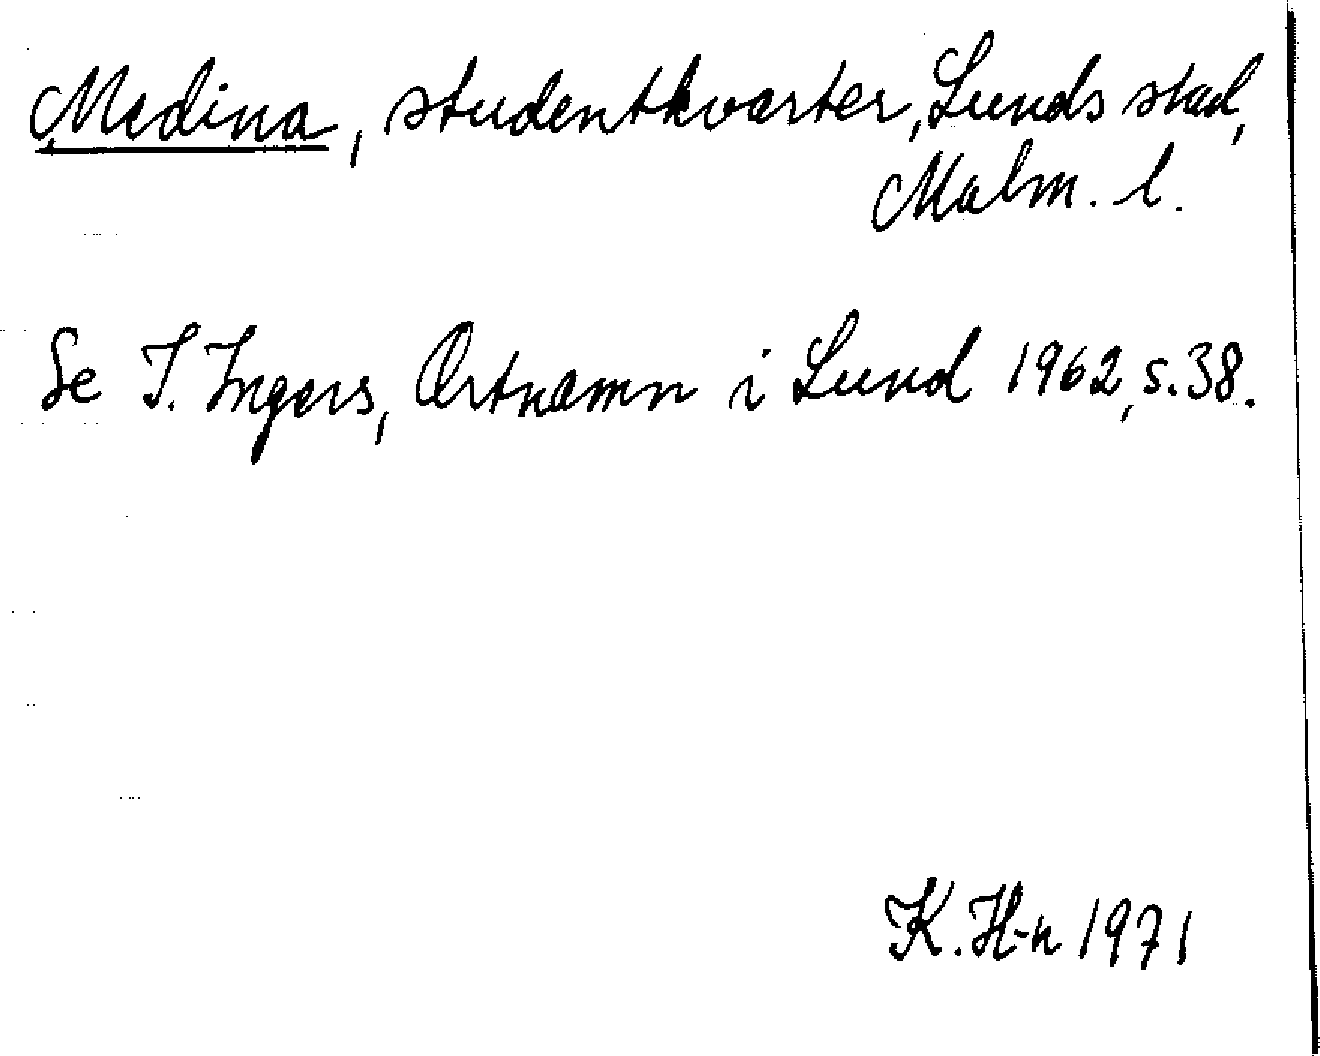 Medina, studentkvarter, Lunds stad,
Malm. l.
Se I. Ingers, Ortnamn i Lund 1962, s. 38.
K. H-n 1971